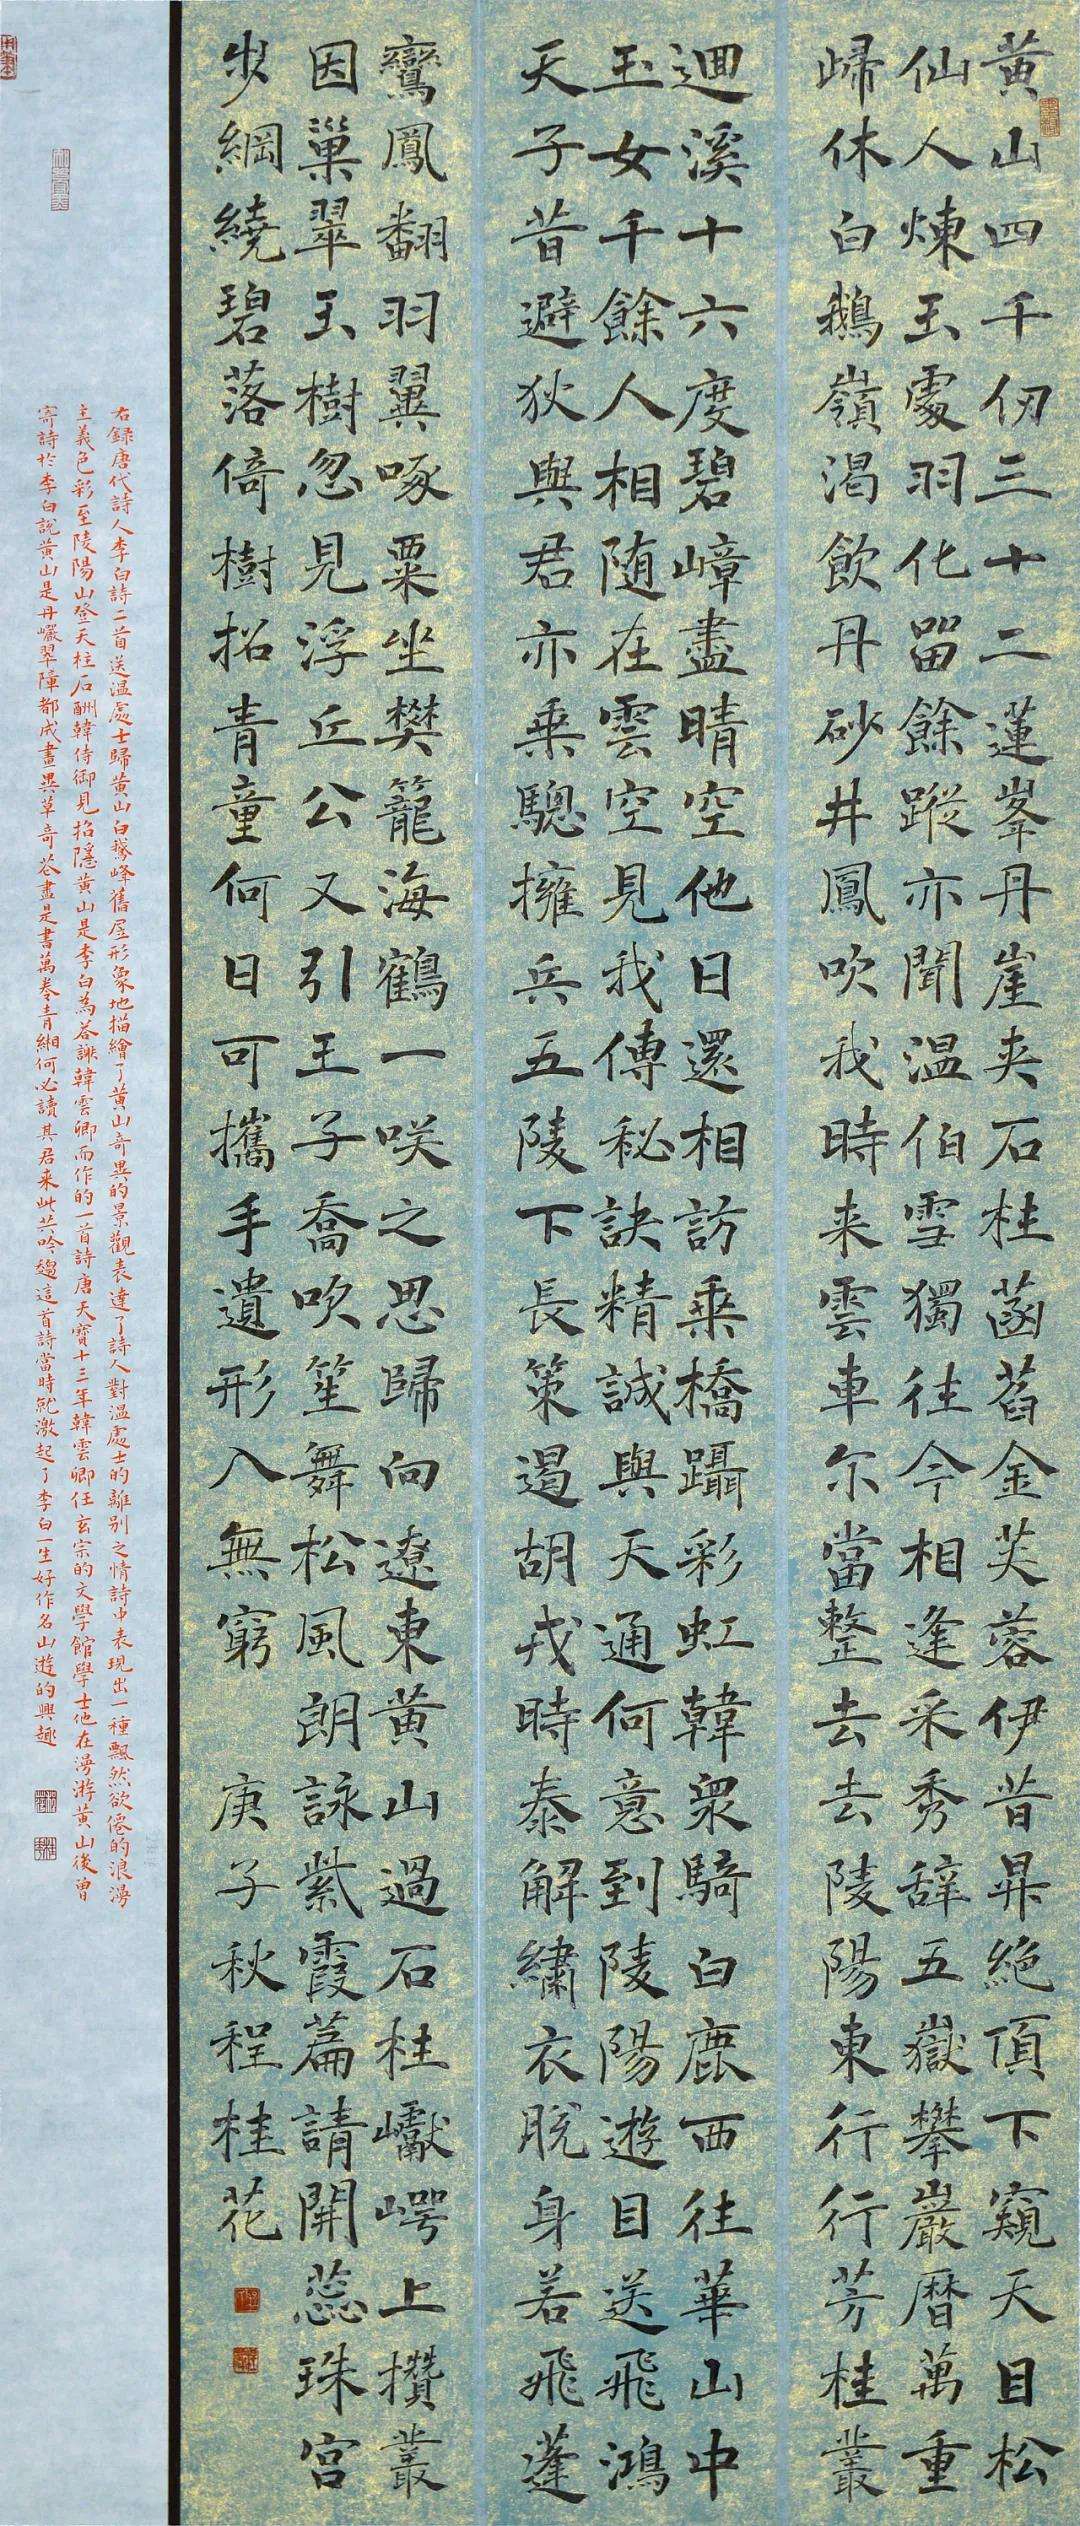 黄山四千仞三十二蓮峯丹崖夾石柱菡萏金芙蓉伊昔昇絶頂下窺天目松
仙人煉玉處羽化留餘蹤亦聞温伯雪獨往今相逢采秀辞五嶽攀巖曆萬重
歸休白鵝嶺渴飲丹砂井鳳吹我時来雲車尔當整去去陵陽東行行芳桂叢
迴溪十六度碧嶂盡晴空他日還相訪乘橋躡彩虹韓衆騎白鹿西往華山中
玉女千餘人相随在雲空見我傳秘訣精誠與天通何意到陵陽遊目送飛鴻
天子昔避狄與君亦乘驄擁兵五陵下長策遏胡戎時泰解繡衣脱身若飛蓬
鸞鳳翻羽翼啄粟坐樊籠海鶴一咲之思歸向遼東黄山過石柱巘崿上攢叢
因巢翠玉樹忽見浮丘公又引王子喬吹笙舞松風朗詠紫霞篇請開蕊珠宫
步綱繞碧落倚樹招青童何日可攜手遺形入無窮 庚子秋程桂花
右録唐代詩人李白詩二首送温處士歸黄山白鵝峰舊居形象地描繪了黄山奇異的景觀表達了詩人對温處士的離别之情詩中表現出一種飄然欲僊的浪漫
主義色彩至陵陽山登天柱石酬韓侍御見招隱黄山是李白為答謝韓雲卿而作的一首詩唐天寶十三年韓雲卿任玄宗的文學館學士他在漫游黄山後曾
寄詩於李白説黄山是丹巖翠障都成畫異草奇花盡是書萬卷青緗何必讀其君来此共吟趨這首詩當時就激起了李白一生好作名山遊的興趣